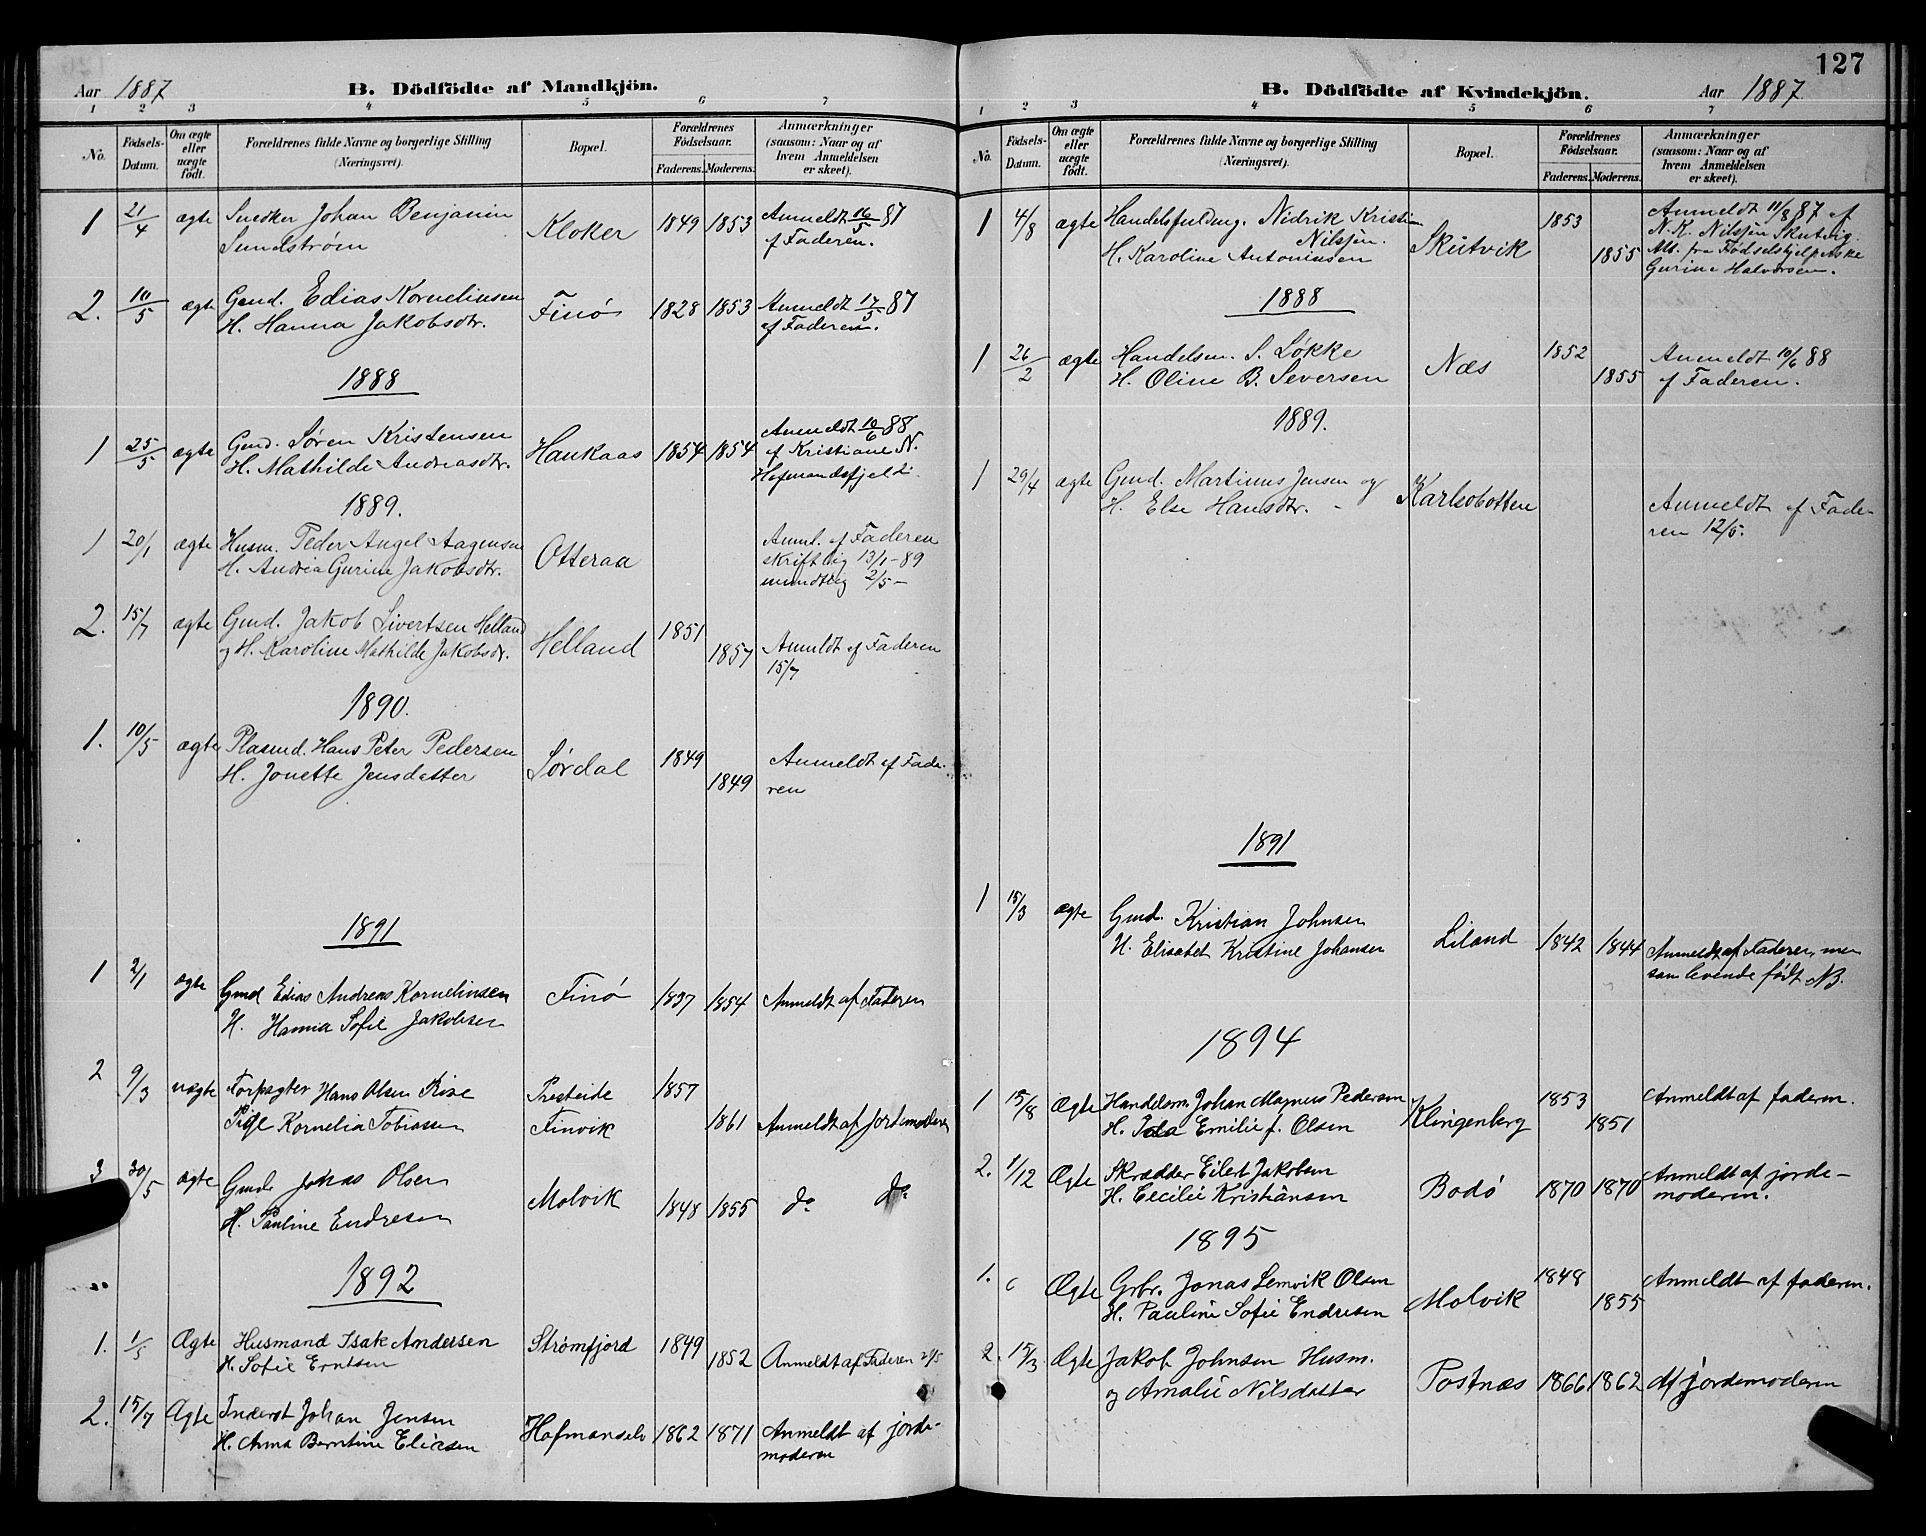 127
Aar 1887
B. Dödfödte af Mandkjön.
1 2 3 4 5 6 7
No.
Födsels-Datum.
Om ægte eller uægte födt.
Forældrenes fulde Navne og borgerlige Stilling (Næringsvei).
Bopæl.
Forældrenes Födselsaar.
Faderens. Moderens.
Anmærkninger (saasom: Naar og af hvem Anmeldelsen er skeet).
1 21/4 ægte Snedker Johan Benjamin Kloker 1849 1853 Anmeldt 16/5 87
Sundstrøm af Faderen.
2. 10/5 ægte Gmd. Edias Kornelinsen Finö 1828 1853 Anmeldt 17/5 87
H. Hanna Jakobsdtr. af Faderen.
1888
1 25/5 ægte Gmd. Søren Kristensen Haukaas 1854 1854 Anmeldt 10/6 88
H. Mathilde Andreasdtr. af Kristiane N.
Hofmandsfjeld.
1889.
1 20/1 ægte Husm. Peder Angel Aagensen Otteraa Anml. af Faderen
H. Andrea Gurine Jakobsdtr. skriftlig 13/1-89
mundtlig 2/5 -
2. 15/7 ægte Gmd. Jakob Sivertsen Helland Helland 1851
og H. Karoline Mathilde Jakobsdr. 1857 Anmeldt af Faderen
15/7
1890.
1. 10/5 ægte Plasmd. Hans Peter Pedersen Sørdal 1849 Anmeldt af Fade-
H. Jonette Jensdatter 1849 ren
1891
1 2/1 ægte Gmd Edias Andreas Kornelinsen Finö 1854 Anmeldt af Faderen
H. Hanna Sofie Jakobsen
2 9/3 uægte Forpagter Hans Olsen Presteide 1857
Pige Kornelia Tobiassen Finvik 1861 Anmeldt af Jordemoderen
3 30/5 ægte Gmd. Jonas Olsen Molvik 1848 1855 do do
H. Pauline Endresen
1892
1. 1/5 Ægte Husmand Isak Andersen Strømfjord 1849
H. Sofie Erntsen 1852 Anmeldt af Faderen
2. 15/7 Ægte Inderst Johan Jensen Hofmanselv 1862 1871 Anmeldt af jorde-
H. Anna Berntine Eliasen moderen
B. Dödfödte af Kvindekjön.
Aar 1887
1 2 3 4 5 6 7
No.
Födsels-Datum.
Om ægte eller uægte födt.
Forældrenes fulde Navne og borgerlige Stilling (Næringsvei).
Bopæl.
Forældrenes Födselsaar.
Faderens. Moderens.
Anmærkninger (saasom: Naar og af hvem Anmeldelsen er skeet).
1 4/8 ægte Handelsfuldmg. Nidrik Kristian 1853 Anmeldt 11/8 87 af
Nilsjen. Skutvik N. K. Nilsjen Skutvig.
H. Karoline Antoninsen 1855 Att. fra Fødselshjelperske
Gurine Halvorsen.
1888
1 26/2 ægte Handelsm. S. Løkke Næs 1852 Anmeldt 10/6 88
H. Oline B. Seversen 1855 af Faderen.
1889.
1 29/4 ægte Gmd. Martinus Jensen og Karlsobotten
H. Else Hansdtr. - Anmeldt af Fade-
ren 12/5.
1891
1 15/3 ægte Gmd. Kristian Johnsen
H. Elisabet Kristine Johansen Liland 1842 1844 Anmeldt af Faderen, men
som levende født NB.
1894
1 15/8 Ægte Handelsm. Johan Magnus Pedersen Klingenberg 1853 Anmeldt af faderen.
H. Ida Emilie f. Olsen 1851
2. 1/12 Ægte Skrædder Eilert Jakobsen Bodö 1870 1870 Anmeldt af jorde-
H. Cecilie Kristiansen moderen.
1895
1. Ægte Grbr. Jonas Lemvik Olsen Molvik 1848 Anmeldt af faderen.
H. Pauline Sofie Endresen 1855
2. 15/3 Ægte Jakob Johnsen Husm. Postnæs 1866 1862 Af jordemoderen
og Amalie Nilsdatter